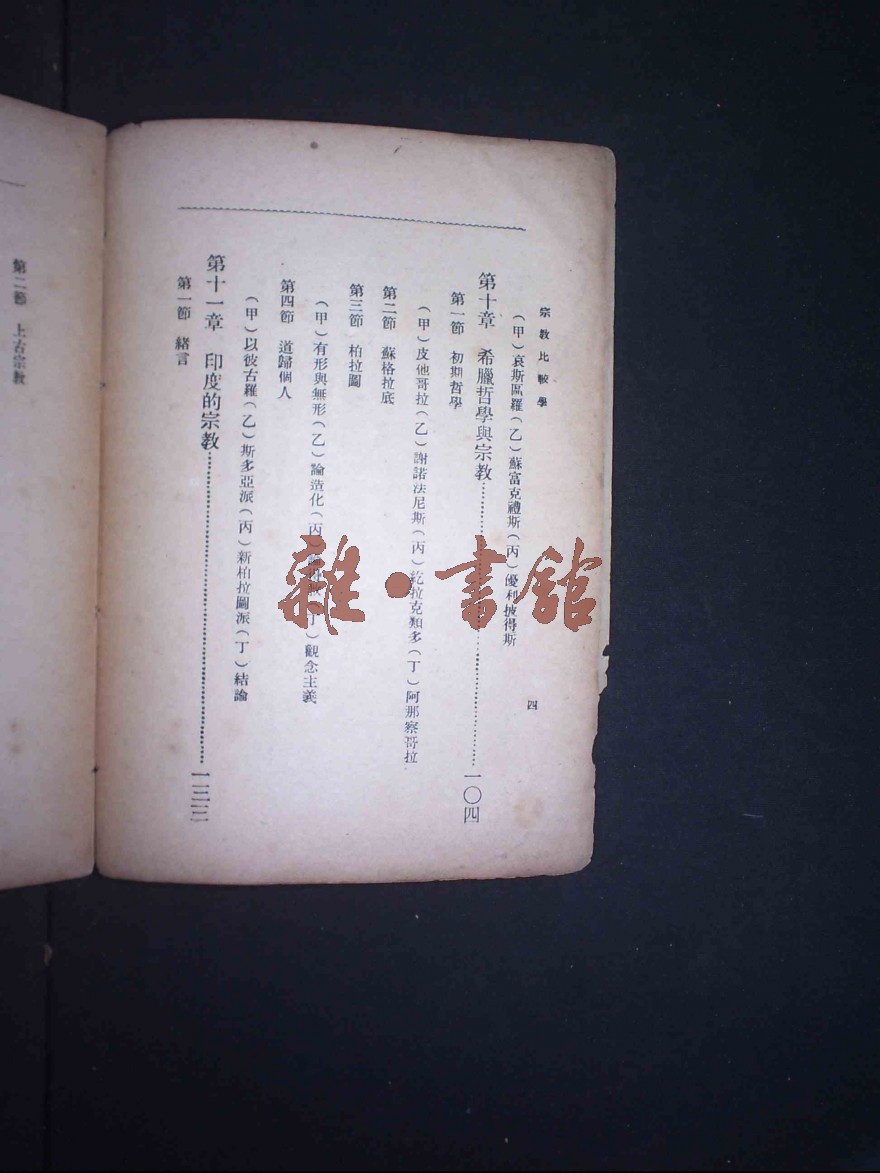 宗教比較學
四
（甲）哀斯區羅（乙）蘇富克禮斯（丙）優利披得斯
第十章　希臘哲學與宗教……一〇四
第一節　初期哲學
（甲）皮他哥拉（乙）謝諾法尼斯（丙）紇拉克類多（丁）阿那察哥拉
第二節　蘇格拉底
第三節　柏拉圖
（甲）有形與無形（乙）論造化（丙）（丁）觀念主義
第四節　道歸個人
（甲）以彼古羅（乙）斯多亞派（丙）新柏拉圖派（丁）結論
第十一章　印度的宗教……一二三
第一節　緒言
第二節　上古宗教
雜·書館